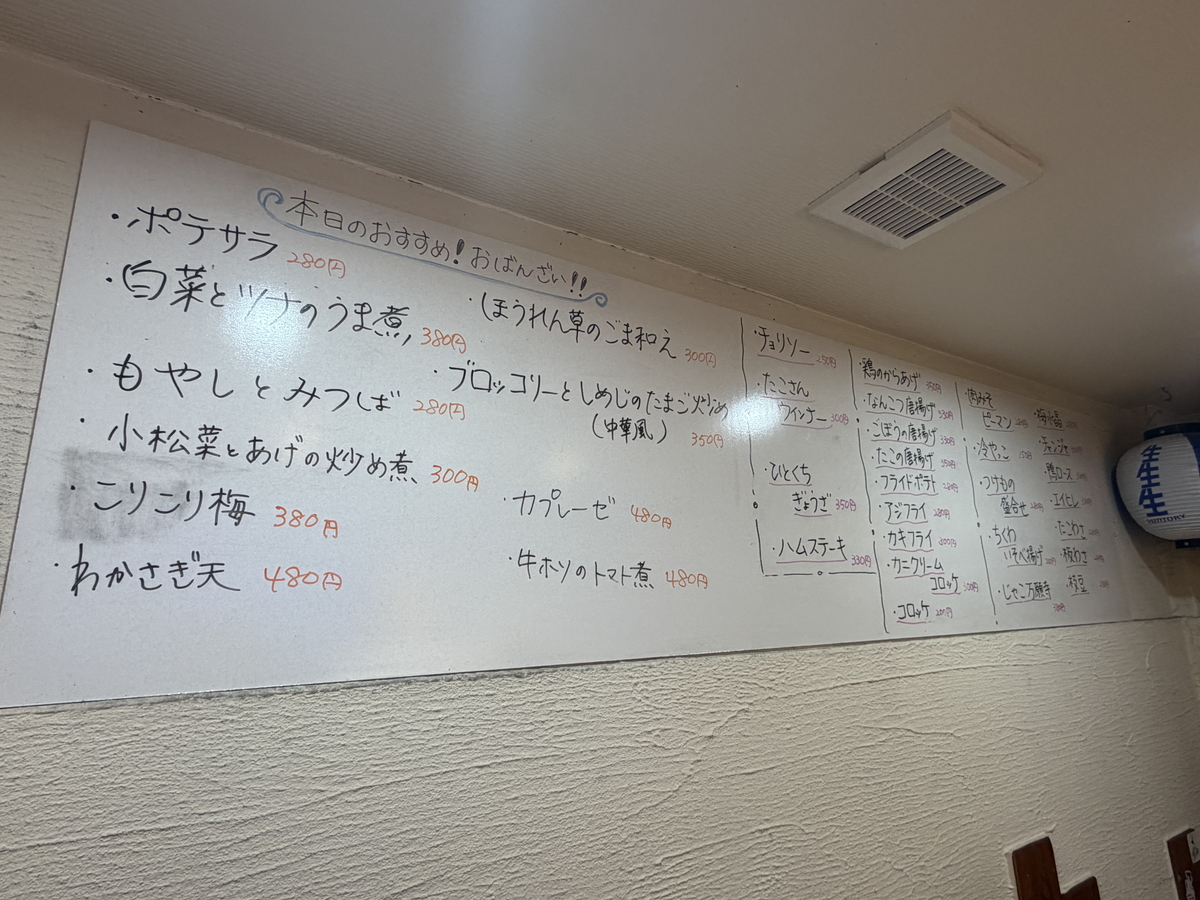 本日のおすすめ!おばんざい!!
・ポテサラ 280円
・白菜とツナのうま煮 380円
・もやしとみつば 280円
・小松菜とあげの炒め煮 300円
・こりこり梅 380円
・わかさぎ天 480円
・ほうれん草のごま和え 300円
・ブロッコリーとしめじのたまご炒め
(中華風) 350円
・カプレーゼ 480円
・牛ホソのトマト煮 480円
・チョリソー 250円
・たこさん
ウィンナー 300円
・ひとくち
ぎょうざ 350円
・ハムステーキ 330円
・鶏のからあげ 350円
・なんこつ唐揚げ 330円
・ごぼうの唐揚げ 330円
・たこの唐揚げ 350円
・フライドポテト
・アジフライ 280円
・カキフライ 300円
・カニクリーム
コロッケ 300円
・コロッケ 200円
・肉みそ
ピーマン
・冷やっこ
・つけもの
盛合せ
・ちくわ
いそべ揚げ
・じゃこ万願寺
・梅水晶
・チャンジャ
・鴨ロース
・エイヒレ
・たこわさ
・板わさ
・枝豆
生生生
SUNTORY